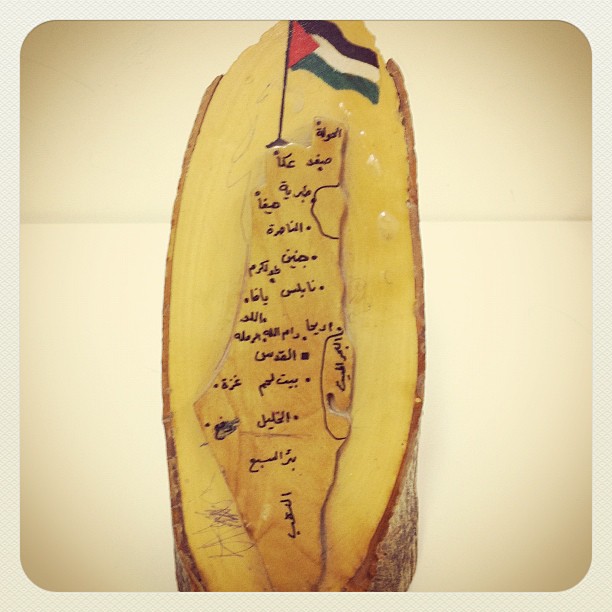 الحولة
صفد عكا
طبرية
حيفا
الناصرة
جنين
طولكرم
نابلس
يافا
اللد
اريحا
رام الله الرملة
القدس
البحر الميت
بيت لحم غزة
الخليل
بئر السبع
النقب